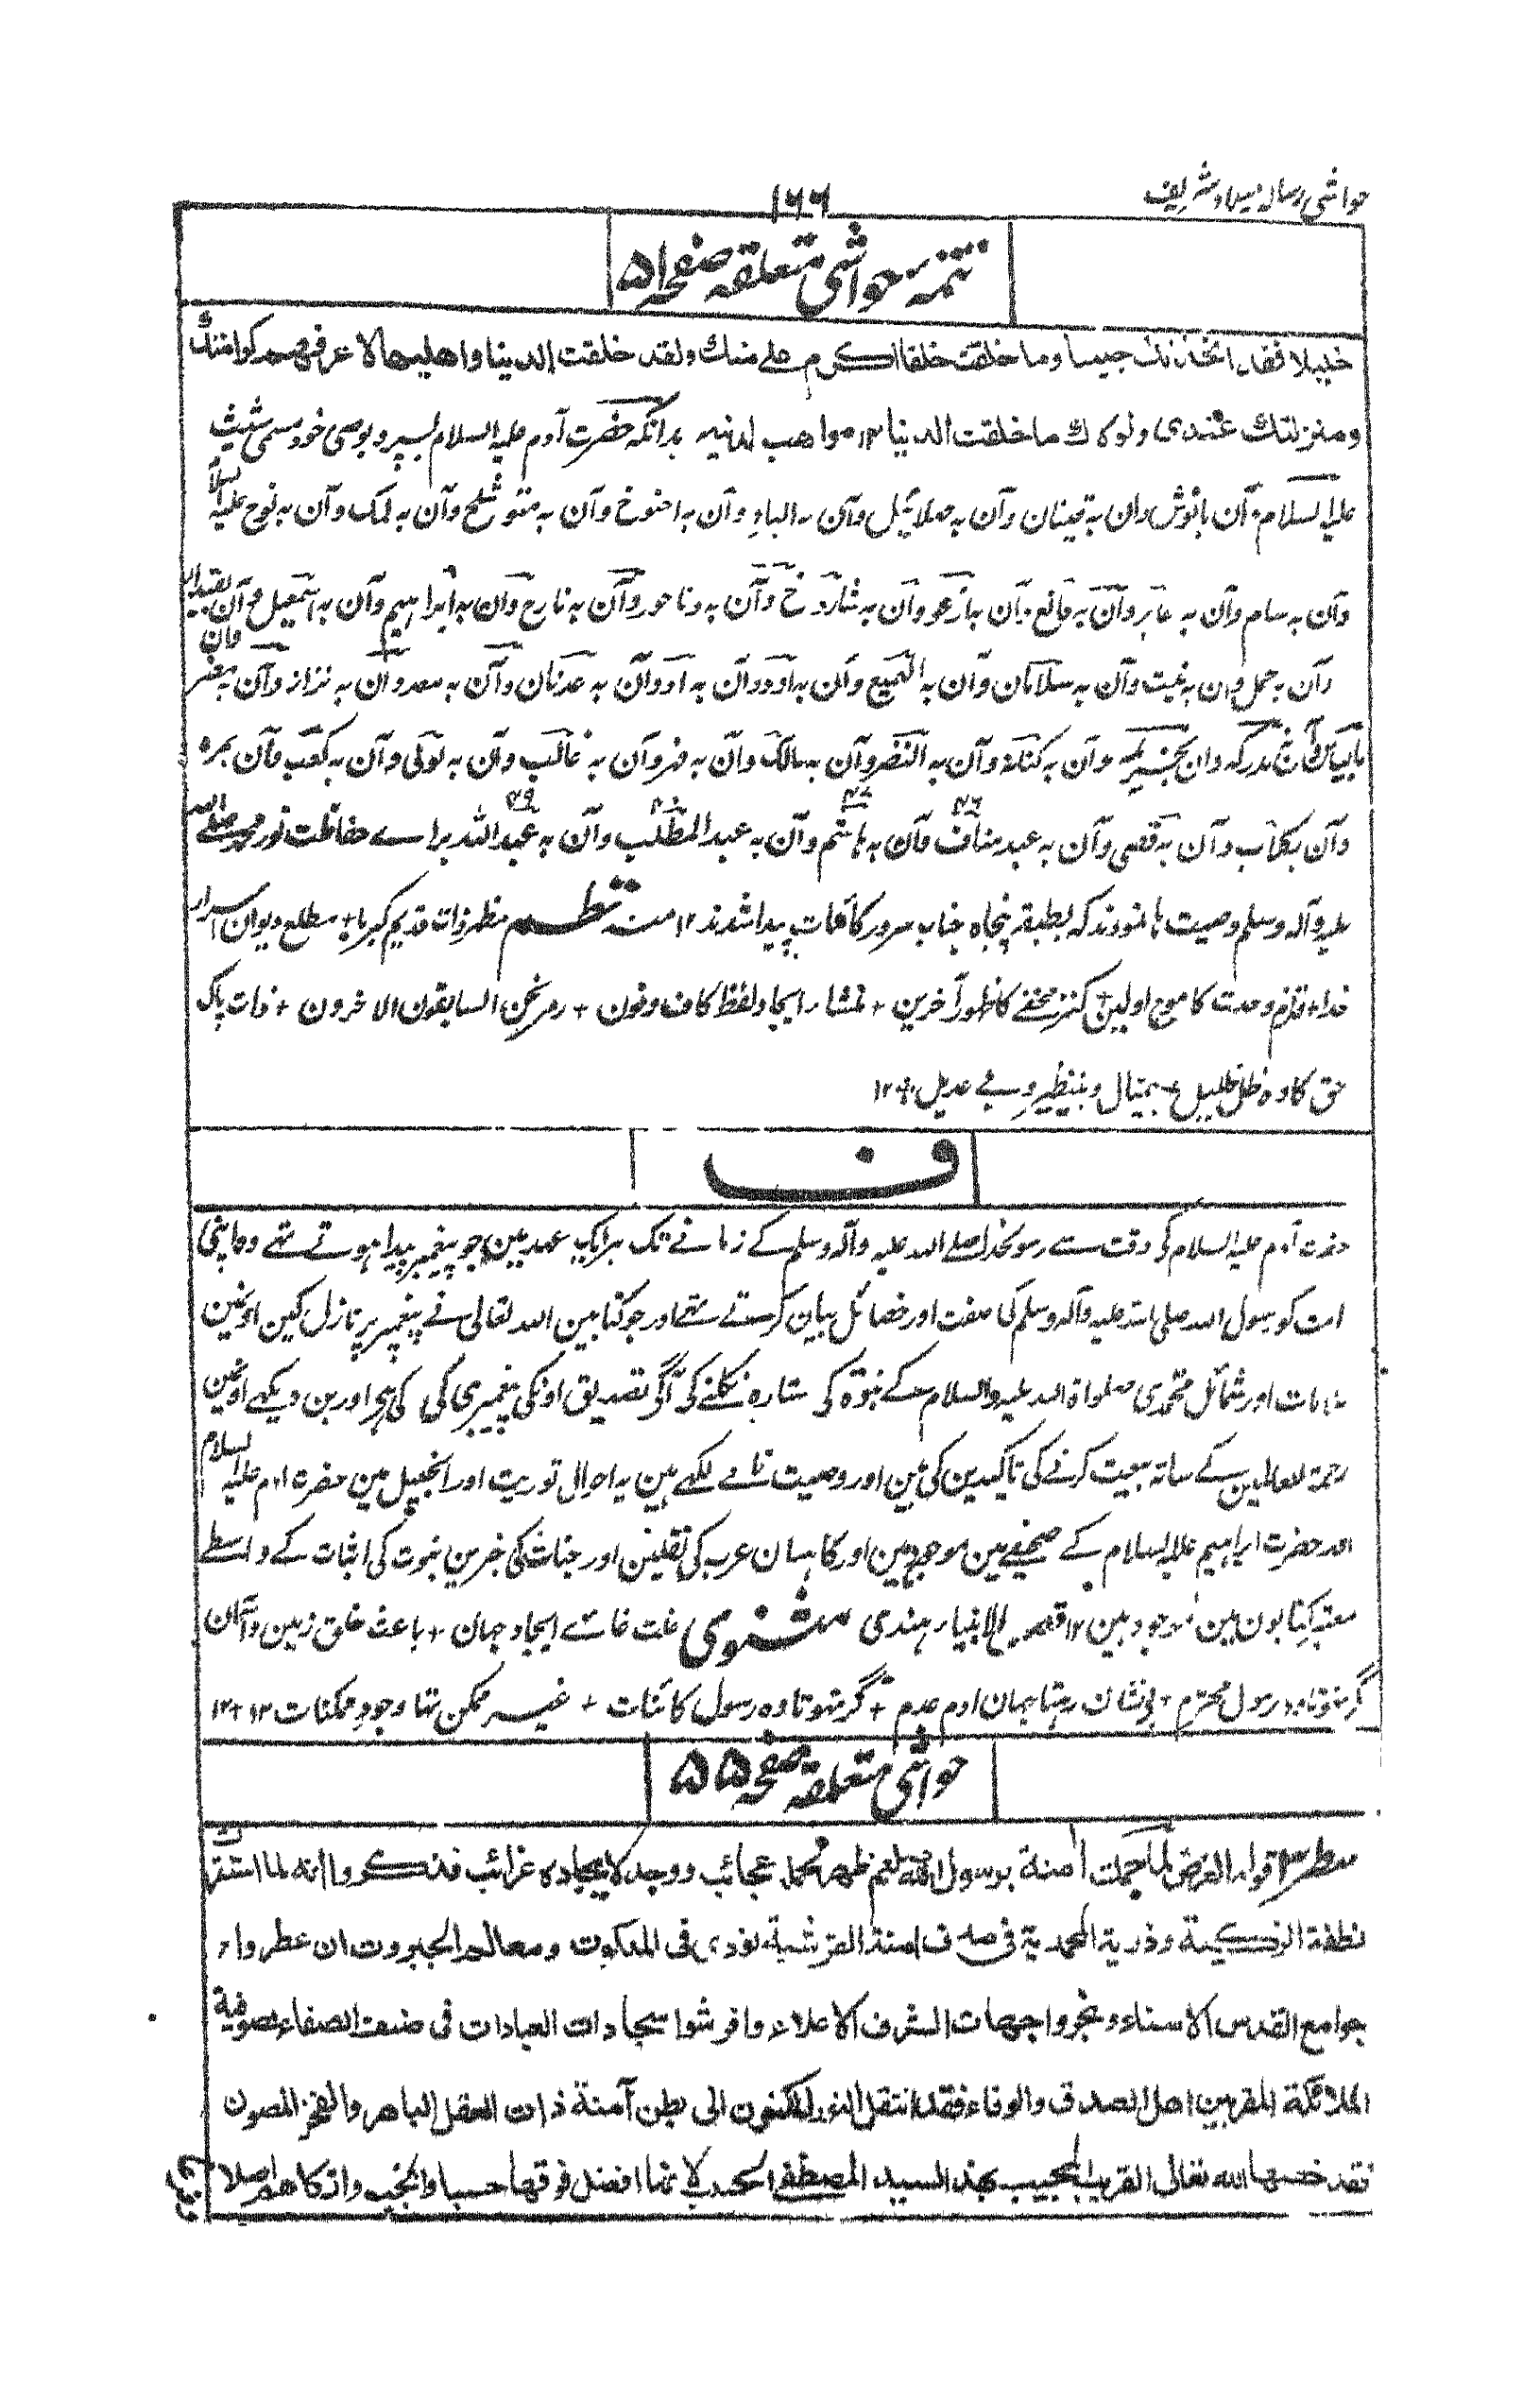 حواشی رسالہ میلاد شریف
۱۶۶
تتمۂ حواشی متعلقہ صفحہ ۵۱
خلیلا فقد اتخذتك حبیبا وما خلقت خلقا اكرم علی منك ولقد خلقت الدنیا واهلیها لاعرفهم كرامتك
ومنزلتك عندی ولولاك ما خلقت الدنیا ۱۲ مواهب لدنیه بدانکہ حضرت آدم علیہ السلام بسپرد بوصی خود مسمی شیث
علیہ السلام و آن بانوش وان بہ قینان وآن بہ مہلائیل وآن بہ الیارد وآن بہ اخنوخ وآن بہ متوشلخ وآن بہ لمک وآن بہ نوح علیہ السلام
وآن بہ سام وآن بہ عابر وآن بہ فالغ وآن بہ ارعو وآن بہ شاروخ وآن بہ وناحور وآن بہ تارح وآن بہ ابراہیم وآن بہ اسمٰعیل وآن بقیدار
وآن بہ حمل وان بہ نبت وآن بہ سلامان وآن بہ الہمیع وآن بہ اود وآن بہ ادد وآن بہ عدنان وآن بہ معد وآن بہ نزار وآن بہ مضر وآن
بالیاس وان بمدرکہ وان بخزیمہ وآن بہ کنانہ وآن بہ النضر وآن بہ مالک وآن بہ فہر وآن بہ غالب وآن بہ لوئی وآن بہ کعب وآن بمرہ
وآن بکلاب وآن بہ قصی وآن بہ عبد مناف وآن بہ ہاشم وآن بہ عبد المطلب وآن بہ عبد اللہ براے حفاظت نور محمد صلے اللہ
علیہ وآلہ وسلم وصیت ہا نمودند کہ بطبقہ پنجاہ جناب سرور کائنات پیدا شدند ۱۲ منہ نظم مظہر ذات قدیم کبریا + مطلع دیوان اسرار
خدا + قلزم وحدت کا موج اولین + کنز مخفی کا ظہور آخرین + منشاء ایجاد لفظ کاف ونون + رمز نحن السابقون الاخرون + ذات پاک
حق کا وہ ظل ظلیل + بمیثال و بینظیر و بے عدیل + ۱۲
ف
حضرت آدم علیہ السلام کی وقت سے رسولخدا صلے اللہ علیہ وآلہ وسلم کے زمانے تک ہر ایک عہد مین جو پیغمبر پیدا ہوتے تھے وہ اپنی
امت کو رسول اللہ صلی اللہ علیہ وآلہ وسلم کی صفت اور خصائل بیان کرتے تھے اور جو کتابین اللہ تعالیٰ نے پیغمبر پر نازل کین اونمین
اور شمائل محمدی صلواۃ اللہ علیہ والسلام کے نبوۃ کی ستارہ نکلنے کی آگی تصدیق اونکی پیغمبری کی کی ہی اور بن دیکھے اونمین
رحمۃ للعالمین کے ساتہ بیعت کرنے کی تاکیدین کی ہین اور وصیت نامے لکھے ہین یہ احوال توریت اور انجیل مین حضرت ادم علیہ السلام
اور حضرت ابراہیم علیہ السلام کے صحیفے مین موجود ہین اور کاہنان عرب کی نقلین اور جنات کی خبرین نبوت کی اثبات کے واسطے
معتبر کتابون مین موجود ہین ۱۲ قصص الانبیاء ہندی مثنوی علت غائے ایجاد جہان + باعث خلق زمین وآسمان
گر نہوتا وہ رسول محترم + بے نشان رہتا جہان ادم عدم + گر نہوتا وہ رسول کائنات + غیر ممکن تھا وجود ممکنات ۱۲ + ۱۲
حواشی متعلقہ صفحہ ۵۵
سطر قولہ الغرض لما حملت آمنة برسول الله صلعم ظهر محمله عجائب ووجد لایجاده غرائب فذكروا انه لما استقرت
نطفة الزكیة وذریة المحمدیة فی صدف آمنة القرشیة نودی فی الملكوت ومعالم الجبروت ان عطروا
جوامع القدس الاسناء وبخروا جهات الشرف الاعلاء وافرشوا سجادات العبادات فی صنف الصفاء لصوفیة
الملائكة المقربین اهل الصدق والوفاء فقد انتقل النور المكنون الی بطن آمنة ذات العقل الباهر والفخر المصون
فقد خصها الله تعالی القریب المجیب بهذ السید المصطفی الحبیب لانها افضل قومها حسبا وانجب وازكاهم اصلا